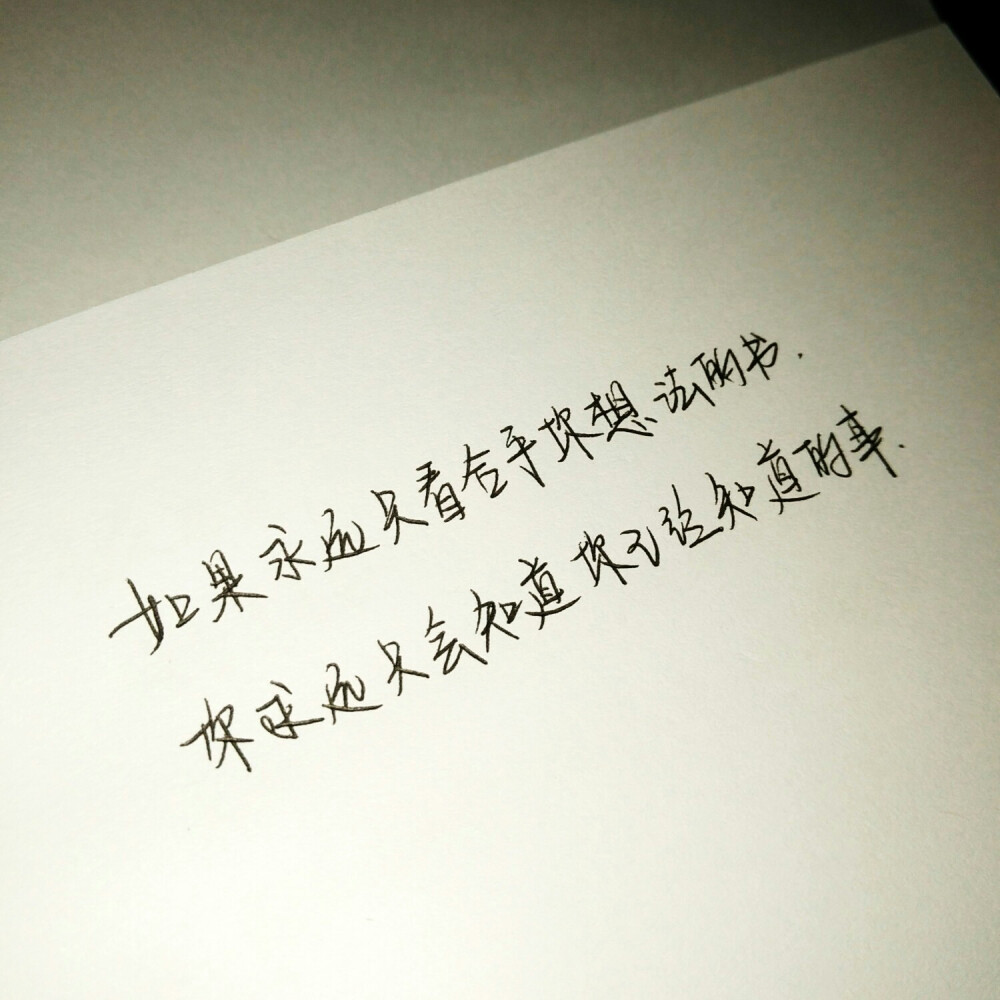 如果永远只看合乎你想法的书.
你永远只会知道你已经知道的事.